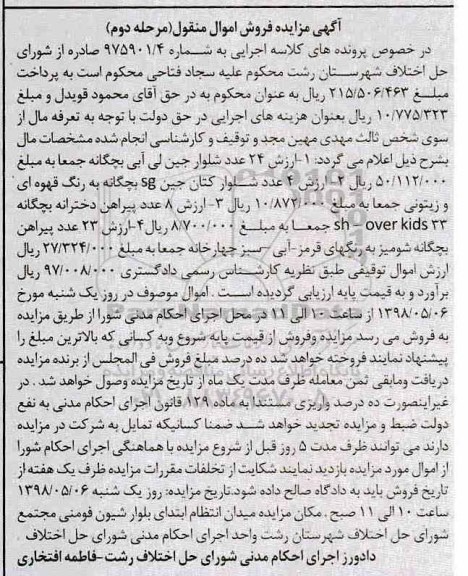 آگهی مزایده فروش اموال منقول(مرحله دوم)
در خصوص پرونده های کلاسه اجرایی به شماره ۹۷۵۹۰۱/۴ صادره از شورای
حل اختلاف شهرستان رشت محکوم علیه سجاد فتاحی محکوم است به پرداخت
مبلغ ۲۱۵/۵۰۶/۴۶۳ ریال به عنوان محکوم به در حق آقای محمود قویدل و مبلغ
۱۰/۷۷۵/۳۲۳ ریال بعنوان هزینه های اجرایی در حق دولت با توجه به تعرفه مال از
سوی شخص ثالث مهدی مهین مجد و توقیف و کارشناسی انجام شده مشخصات مال
بشرح ذیل اعلام می گردد: ۱-ارزش ۲۴ عدد شلوار جین لی آبی بچگانه جمعا به مبلغ
۵۰/۱۱۲/۰۰۰ ریال ۲- ارزش عدد شلوار کتان جین sg بچگانه به رنگ قهوه ای
و زیتونی جمعا به مبلغ ۱۰/۸۷۲/۰۰۰ ریال ۳- ارزش ۸ عدد پیراهن دخترانه بچگانه
sh over kids ۳۳ جمعا به مبلغ ۸/۷۰۰/۰۰۰ ریال ۴-ارزش ۲۳ عدد پیراهن
بچگانه شومیز به رنگهای قرمز-آبی -سبز چهارخانه جمعا به مبلغ ۲۷/۳۲۴/۰۰۰ ریال
ارزش اموال توقیفی طبق نظریه کارشناس رسمی دادگستری ۹۷/۰۰۸/۰۰۰ ریال
برآورد و به قیمت پایه ارزیابی گردیده است . اموال موصوف در روز یک شنبه مورخ
۱۳۹۸/۰۵/۰۶ از ساعت ۱۰ الی ۱۱ در محل اجرای احکام مدنی شورا از طریق مزایده
به فروش می رسد مزایده وفروش از قیمت پایه شروع وبه کسانی که بالاترین مبلغ را
پیشنهاد نمایند فروخته خواهد شد ده درصد مبلغ فروش فی المجلس از برنده مزایده
دریافت ومابقی ثمن معامله ظرف مدت یک ماه از تاریخ مزایده وصول خواهد شد . در
غیراینصورت ده درصد واریزی مستندا به ماده ۱۲۹ قانون اجرای احکام مدنی به نفع
دولت ضبط و مزایده تجدید خواهد شد ضمنا کسانیکه تمایل به شرکت در مزایده
دارند می توانند ظرف مدت ۵ روز قبل از شروع مزایده با هماهنگی اجرای احکام شورا
از اموال مورد مزایده بازدید نمایند شکایت از تخلفات مقررات مزایده ظرف یک هفته از
تاریخ فروش باید به دادگاه صالح داده شود.تاریخ مزایده: روز یک شنبه ۱۳۹۸/۰۵/۰۶
ساعت ۱۰ الی ۱۱ صبح . مکان مزایده میدان انتظام ابتدای بلوار شیون فومنی مجتمع
شورای حل اختلاف شهرستان رشت واحد اجرای احکام مدنی شورای حل اختلاف
دادورز اجرای احکام مدنی شورای حل اختلاف رشت -فاطمه افتخاری